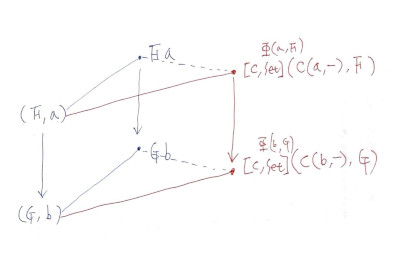 𝔽a
Φ(a,𝔽)
[C,Set](C(a,-),𝔽)
(𝔽,a)
𝔾b
Φ(b,𝔾)
[C,Set](C(b,-),𝔾)
(𝔾,b)